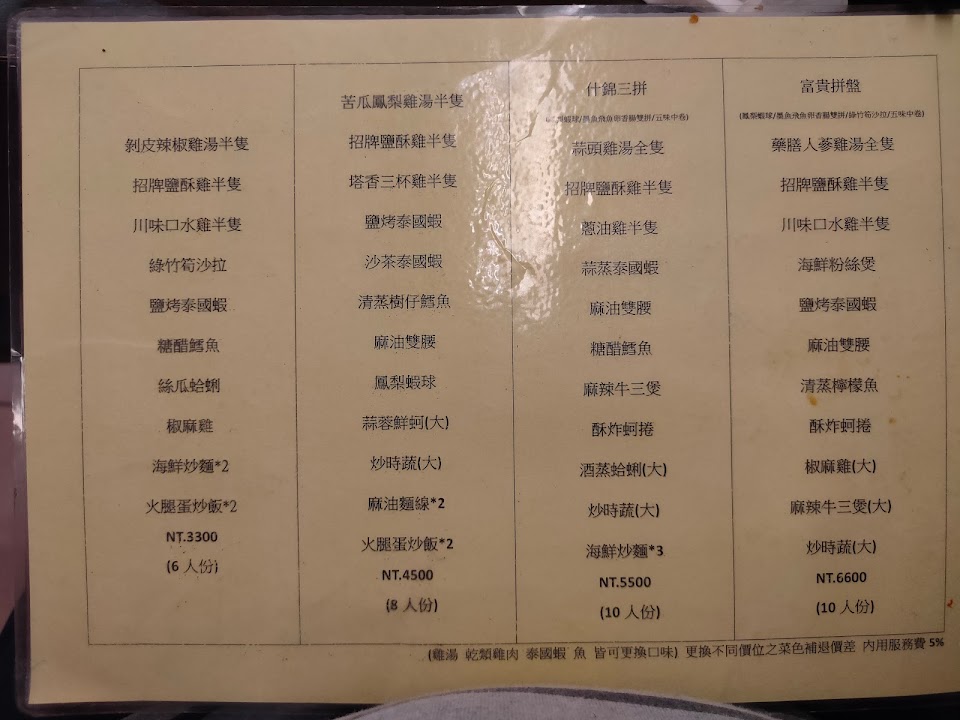 剝皮辣椒雞湯半隻
招牌鹽酥雞半隻
川味口水雞半隻
綠竹筍沙拉
鹽烤泰國蝦
糖醋鱈魚
絲瓜蛤蜊
椒麻雞
海鮮炒麵*2
火腿蛋炒飯*2
NT.3300
(6 人份)
苦瓜鳳梨雞湯半隻
招牌鹽酥雞半隻
塔香三杯雞半隻
鹽烤泰國蝦
沙茶泰國蝦
清蒸樹仔鱈魚
麻油雙腰
鳳梨蝦球
蒜蓉鮮蚵(大)
炒時蔬(大)
麻油麵線*2
火腿蛋炒飯*2
NT.4500
(8 人份)
什錦三拼
蝦球/墨魚飛魚卵香腸雙拼/五味中卷)
蒜頭雞湯全隻
招牌鹽酥雞半隻
蔥油雞半隻
蒜蒸泰國蝦
麻油雙腰
糖醋鱈魚
麻辣牛三煲
酥炸蚵捲
酒蒸蛤蜊(大)
炒時蔬(大)
海鮮炒麵*3
NT.5500
(10 人份)
富貴拼盤
(鳳梨蝦球/墨魚飛魚卵香腸雙拼/綠竹筍沙拉/五味中卷)
藥膳人蔘雞湯全隻
招牌鹽酥雞半隻
川味口水雞半隻
海鮮粉絲煲
鹽烤泰國蝦
麻油雙腰
清蒸檸檬魚
酥炸蚵捲
椒麻雞(大)
麻辣牛三煲(大)
炒時蔬(大)
NT.6600
(10 人份)
(雞湯 乾類雞肉 泰國蝦 魚 皆可更換口味) 更換不同價位之菜色補退價差 內用服務費 5%